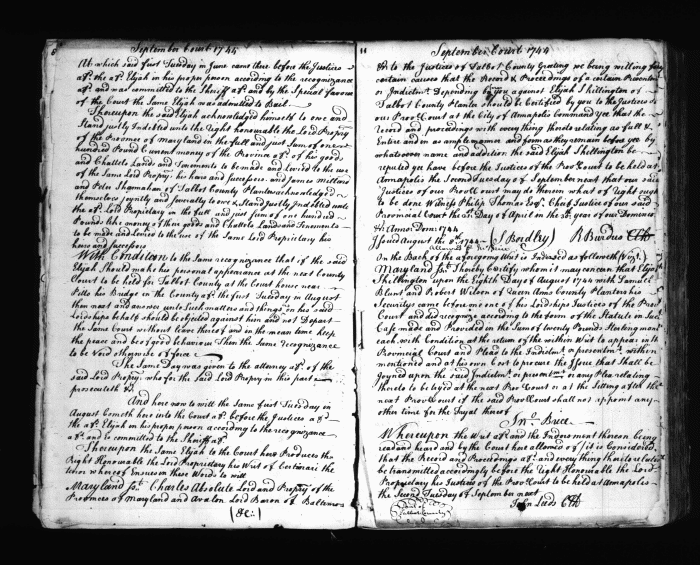 September Court 1744
At which said first Tuesday in June came there before the Justices
afs. the afs. Elijah in his proper person according to the recognizance
afs. and was committed to the Sheriff afs. and by the Special favour
of the Court the Same Elijah was admitted to Bail
Thereupon the said Elijah acknowledged himself to owe and
Stand justly Indebted unto the Right honourable the Lord Propry
of the Province of maryland in the full and just Sum of one
hundred Pound Current money of the Province afs. of his goods
and Chattels Lands and Tenements to be made and Levied to the use
of the Same Lord Propry his heirs and Successors and James Millond
and Peter Sharmahan of Talbot County Planters acknowledged
themselves joyntly and severally to owe & Stand justly Indebted unto
the afs. Lord Proprietary in the full and just sum of one hundred
Pounds like money of their goods and Chattels Lands and Tenements
to be made and Levied to the use of the Same Lord Proprietary his
heirs and Successors
With Condition to the Same recognizance that if the said
Elijah Should make his personal appearance at the next County
Court to be held for Talbot County at the Court house near
Pitts his Bridge in the County afs. the first Tuesday in August
then next and answer unto Such matters and things on his said
Lordships behalf should be objected against him and not Depart
the Same Court without leave thereof and in the mean time keep
the peace and be of good behaviour Then the Same recognizance
to be Void otherwise of force
The Same Day was given to the attorney afs. of the
said Lord Propry. who for the said Lord Propry in this part
prosecuteth &c.
And here now to wit the Same first Tuesday in
August Cometh here into the Court afs. before the Justices afs.
the afs. Elijah in his proper person according to the recognizance
afs. and is committed to the Sheriff afs.
Thereupon the Same Elijah to the Court here Produces the
Right Honourable the Lord Proprietary his Writ of Certiorari the
tenor whereof Ensues in these Words to wit
Maryland sst. Charles Absolute Lord and Propry of the
Provinces of Maryland and Avalon Lord Baron of Baltimore
(&c:)
11
September Court 1744
&c to the Justices of Talbot County Greeting we being willing for
certain causes that the Record & Proceedings of a certain Presentmt
or Indictmt. Depending by you against Elijah Skillington of
Talbot County Planter should be Certified by you to the Justices of
our Provl Court at the City of Annapolis Command ye that the
Record and proceedings with every thing thereto relating as full &
Entire and in as ample manner and form as they remain before ye by
whatsoever name and addition the said Elijah Skillington be
reputed ye have before the Justices of the Provl Court to be held at
Annapolis the Second Tuesday of September next that our said
Justices of our Provl Court may do therein what of right ought
to be done Witness Philip Thomas Esqr. Chief Justice of our said
Provincial Court the Day of April in the year of our Dominion
&c Annoq Dom: 1744
Issued August the 1744 (J Bordley) R Burdus Clk
On the Back of the aforegoing Writ is Indorsed as followeth (Vizt.)
Maryland sst. I hereby Certify whom it may concern that Elijah
Skillington upon the Eighth Day of August 1744 with Samuel
and Robert Wilson of Queen Anns County Planters his
Securitys came before me one of his Lordships Justices of the Provl
Court and did recognize according to the form of the Statute in Such
Case made and Provided in the Sum of twenty Pounds Sterling money
each, with Condition at the return of the within Writ to appear with
Provincial Court and Plead to the Indictmt. or presentmt. within
mentioned and at his own Cost to procure the Issue that Shall be
Joyned upon the said Indictmt. or presentmt. or any Plea relating
thereto to be tryed at the next Provl Court or at the Setting after the
next Provl Court if the said Provl Court shall not appoint any
other time for the Tryal thereof
Jno. Brice
Whereupon the Writ afs. and the Indorsement thereon being
read and heard and by the Court here allowed of it is Considered
that the Record and Proceedings afs. and every thing thereto relating
be transmitted accordingly before the Right Honourable the Lord
Proprietary his Justices of the Provl Court to be held at Annapolis
the Second Tuesday of September next
John Leeds Clk
Talbot County